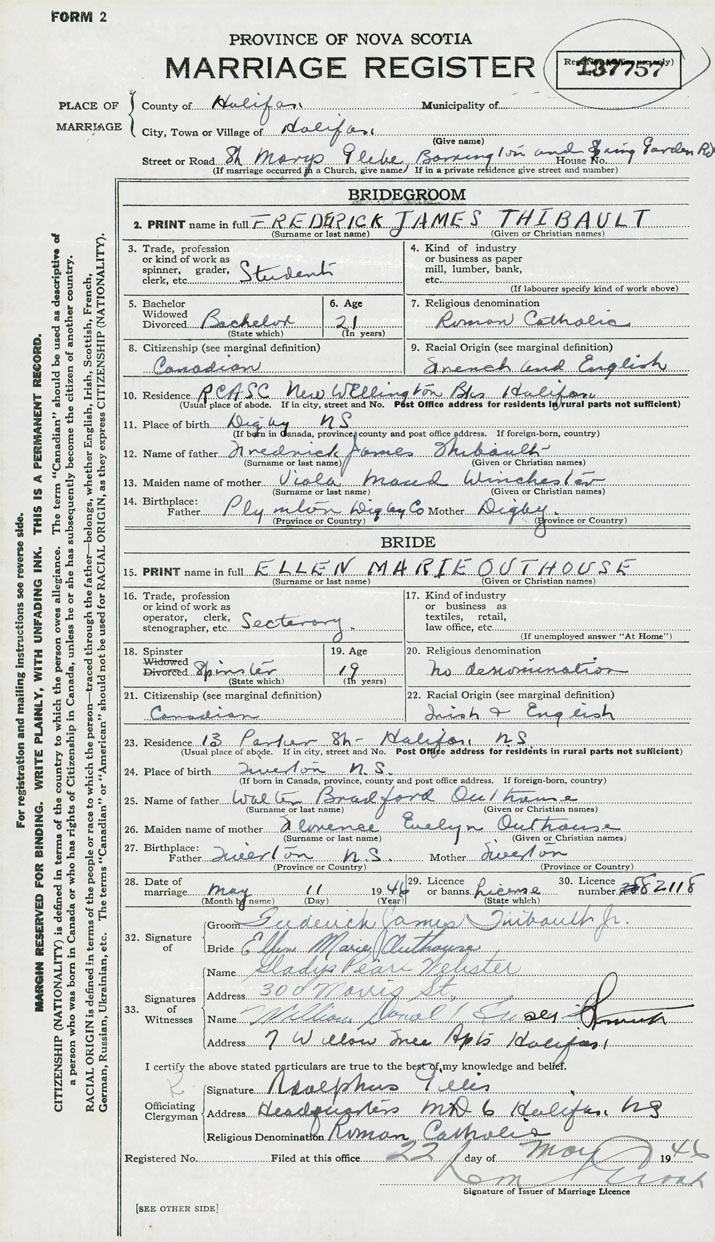 FORM 2
PROVINCE OF NOVA SCOTIA
MARRIAGE REGISTER
137757
PLACE OF MARRIAGE
County of Halifax Municipality of
City, Town or Village of Halifax
(Give name)
Street or Road St Marys Glebe, Barrington and Spring Garden Rd House No.
(If marriage occurred in a Church, give name) (If in a private residence give street and number)
BRIDEGROOM
2. PRINT name in full FREDERICK JAMES THIBAULT
(Surname or last name) (Given or Christian names)
3. Trade, profession or kind of work as spinner, grader, clerk, etc. Student
4. Kind of industry or business as paper mill, lumber, bank, etc.
(If labourer specify kind of work above)
5. Bachelor Widowed Divorced Bachelor
(State which)
6. Age 21
(In years)
7. Religious denomination
Roman Catholic
8. Citizenship (see marginal definition)
Canadian
9. Racial Origin (see marginal definition)
French and English
10. Residence RCASC New Wellington Bks Halifax
(Usual place of abode. If in city, street and No. Post Office address for residents in rural parts not sufficient)
11. Place of birth Digby NS
(If born in Canada, province, county and post office address. If foreign-born, country)
12. Name of father Fredrick James Thibault
(Surname or last name) (Given or Christian names)
13. Maiden name of mother Viola Maud Winchester
(Surname or last name) (Given or Christian names)
14. Birthplace: Father Plymton Digby Co Mother Digby
(Province or Country) (Province or Country)
BRIDE
15. PRINT name in full ELLEN MARIE OUTHOUSE
(Surname or last name) (Given or Christian names)
16. Trade, profession or kind of work as operator, clerk, stenographer, etc. Secterary.
17. Kind of industry or business as textiles, retail, law office, etc.
(If unemployed answer "At Home")
18. Spinster Widowed Divorced Spinster
(State which)
19. Age 19
(In years)
20. Religious denomination
No denomination
21. Citizenship (see marginal definition)
Canadian
22. Racial Origin (see marginal definition)
Irish & English
23. Residence 13 Parker St- Halifax N.S.
(Usual place of abode. If in city, street and No. Post Office address for residents in rural parts not sufficient)
24. Place of birth Tiverton N.S.
(If born in Canada, province, county and post office address. If foreign-born, country)
25. Name of father Walter Bradford Outhouse
(Surname or last name) (Given or Christian names)
26. Maiden name of mother Florence Evelyn Outhouse
(Surname or last name) (Given or Christian names)
27. Birthplace: Father Tiverton N.S. Mother Tiverton
(Province or Country) (Province or Country)
28. Date of marriage May 11 1946
(Month by name) (Day) (Year)
29. Licence or banns License
(State which)
30. Licence number 82118
32. Signature of
Groom Frederick James Thibault Jr.
Bride Ellen Marie Outhouse
33. Signatures of Witnesses
Name Gladys Pearl Webster
Address 300 Morris St,
Name William Donal
Address 7 Willow Tree Apts Halifax
I certify the above stated particulars are to the best of my knowledge and belief.
Officiating Clergyman
Signature Adolphus Gillis
Address Headquarters MD 6 Halifax NS
Religious Denomination Roman Catholic
Registered No. Filed at this office 22 day of May 1946
Signature of Issuer of Marriage Licence
[SEE OTHER SIDE]
For registration and mailing instructions see reverse side.
MARGIN RESERVED FOR BINDING. WRITE PLAINLY, WITH UNFADING INK. THIS IS A PERMANENT RECORD.
CITIZENSHIP (NATIONALITY) is defined in terms of the country to which the person owes allegiance. The term "Canadian" should be used as descriptive of
a person who was born in Canada or who has rights of Citizenship in Canada, unless he or she has subsequently become the citizen of another country.
RACIAL ORIGIN is defined in terms of the people or race to which the person—traced through the father—belongs, whether English, Irish, Scottish, French,
German, Russian, Ukrainian, etc. The terms "Canadian" or "American" should not be used for RACIAL ORIGIN, as they express CITIZENSHIP (NATIONALITY).